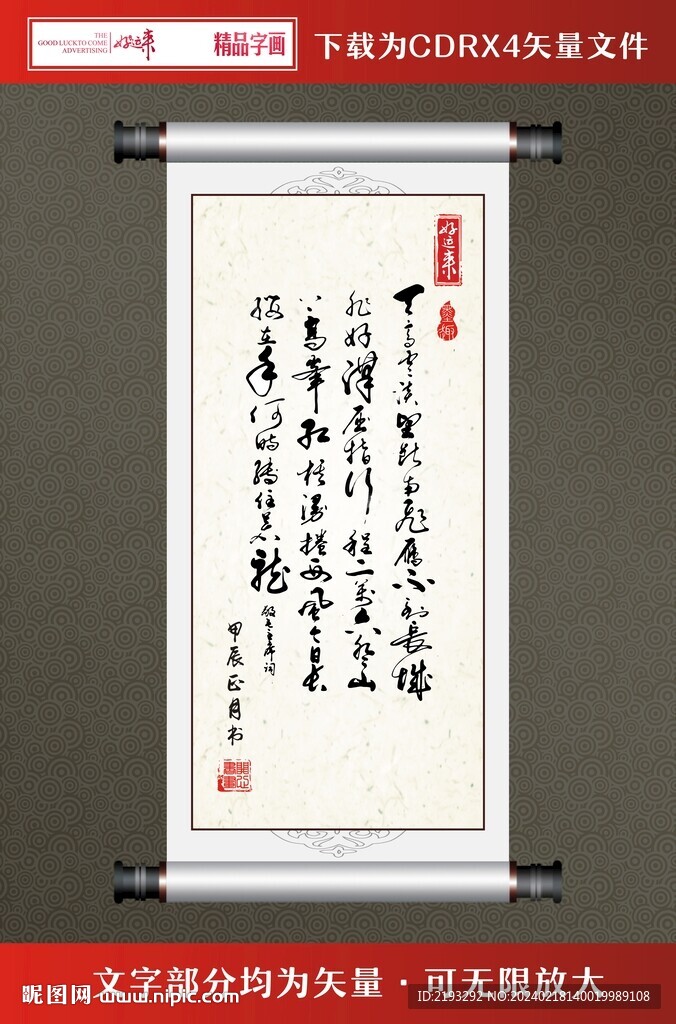 THE
GOOD LUCKTO COME
ADVERTISING
好运来
精品字画
下载为CDRX4矢量文件
好运来
天高雲淡望斷南飛雁不到長城
非好漢屈指行程二萬六盤山
上高峯紅旗漫捲西風今日長
纓在手何時縛住蒼龍
毛主席词
甲辰正月书
文字部分均为矢量·可无限放大
昵图网 www.nipic.com
ID:2193292 NO:20240218140019989108